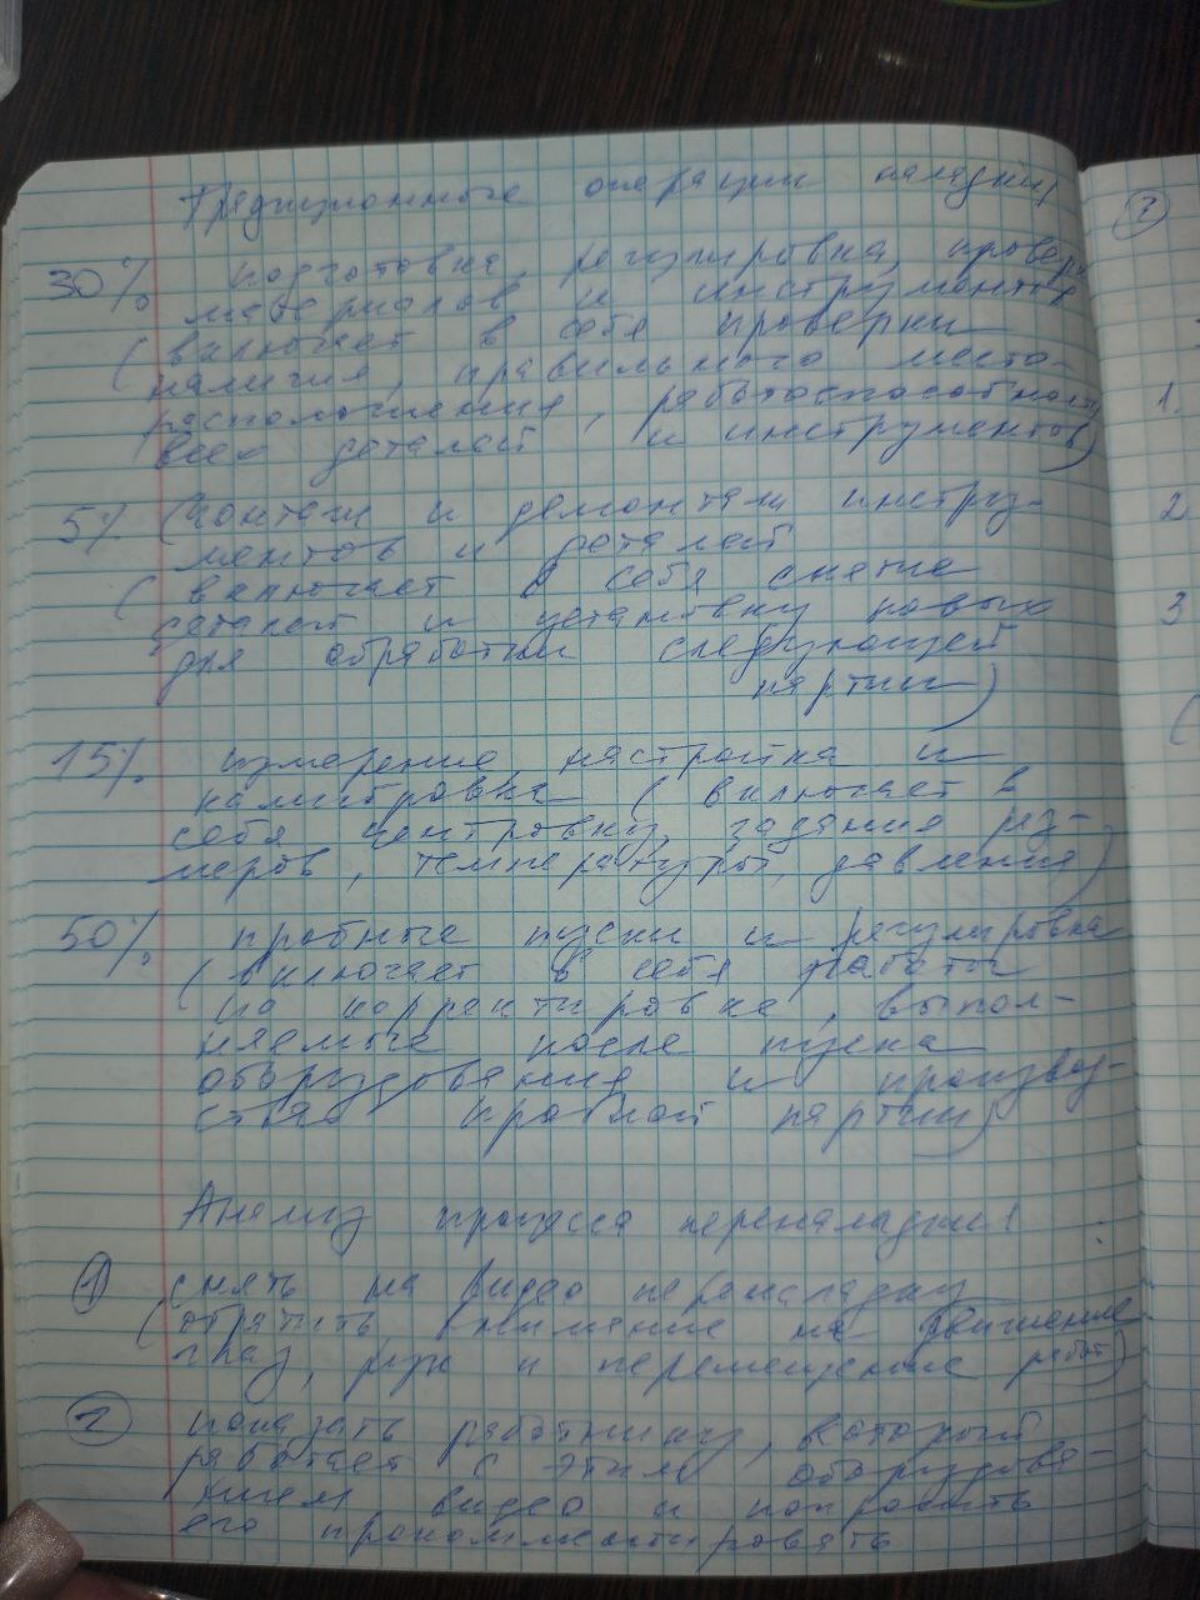 Традиционные операции наладки
30% подготовка, регулировка, проверка
материалов и инструментов
(включает в себя проверки
наличия, правильного место-
расположения, работоспособности
всех деталей и инструментов)
5% (монтаж и демонтаж инстру-
ментов и деталей
(включает в себя снятие
деталей и установку новых
для обработки следующей
партии)
15% измерение, настройка и
калибровка (включает в
себя центровку, задания раз-
меров, температуры, давления)
50% пробные пуски и регулировка
(включает в себя работы
по корректировке, выпол-
няемые после пуска
оборудования и производ-
ства пробной партии)
Анализ процесса переналадки:
1 снять на видео переналадку
(обратить внимание на движение
глаз, рук и перемещение работ)
2 показать работнику, который
работает с этим оборудова-
нием, видео и попросить
его прокомментировать
?
1.
2
3
(